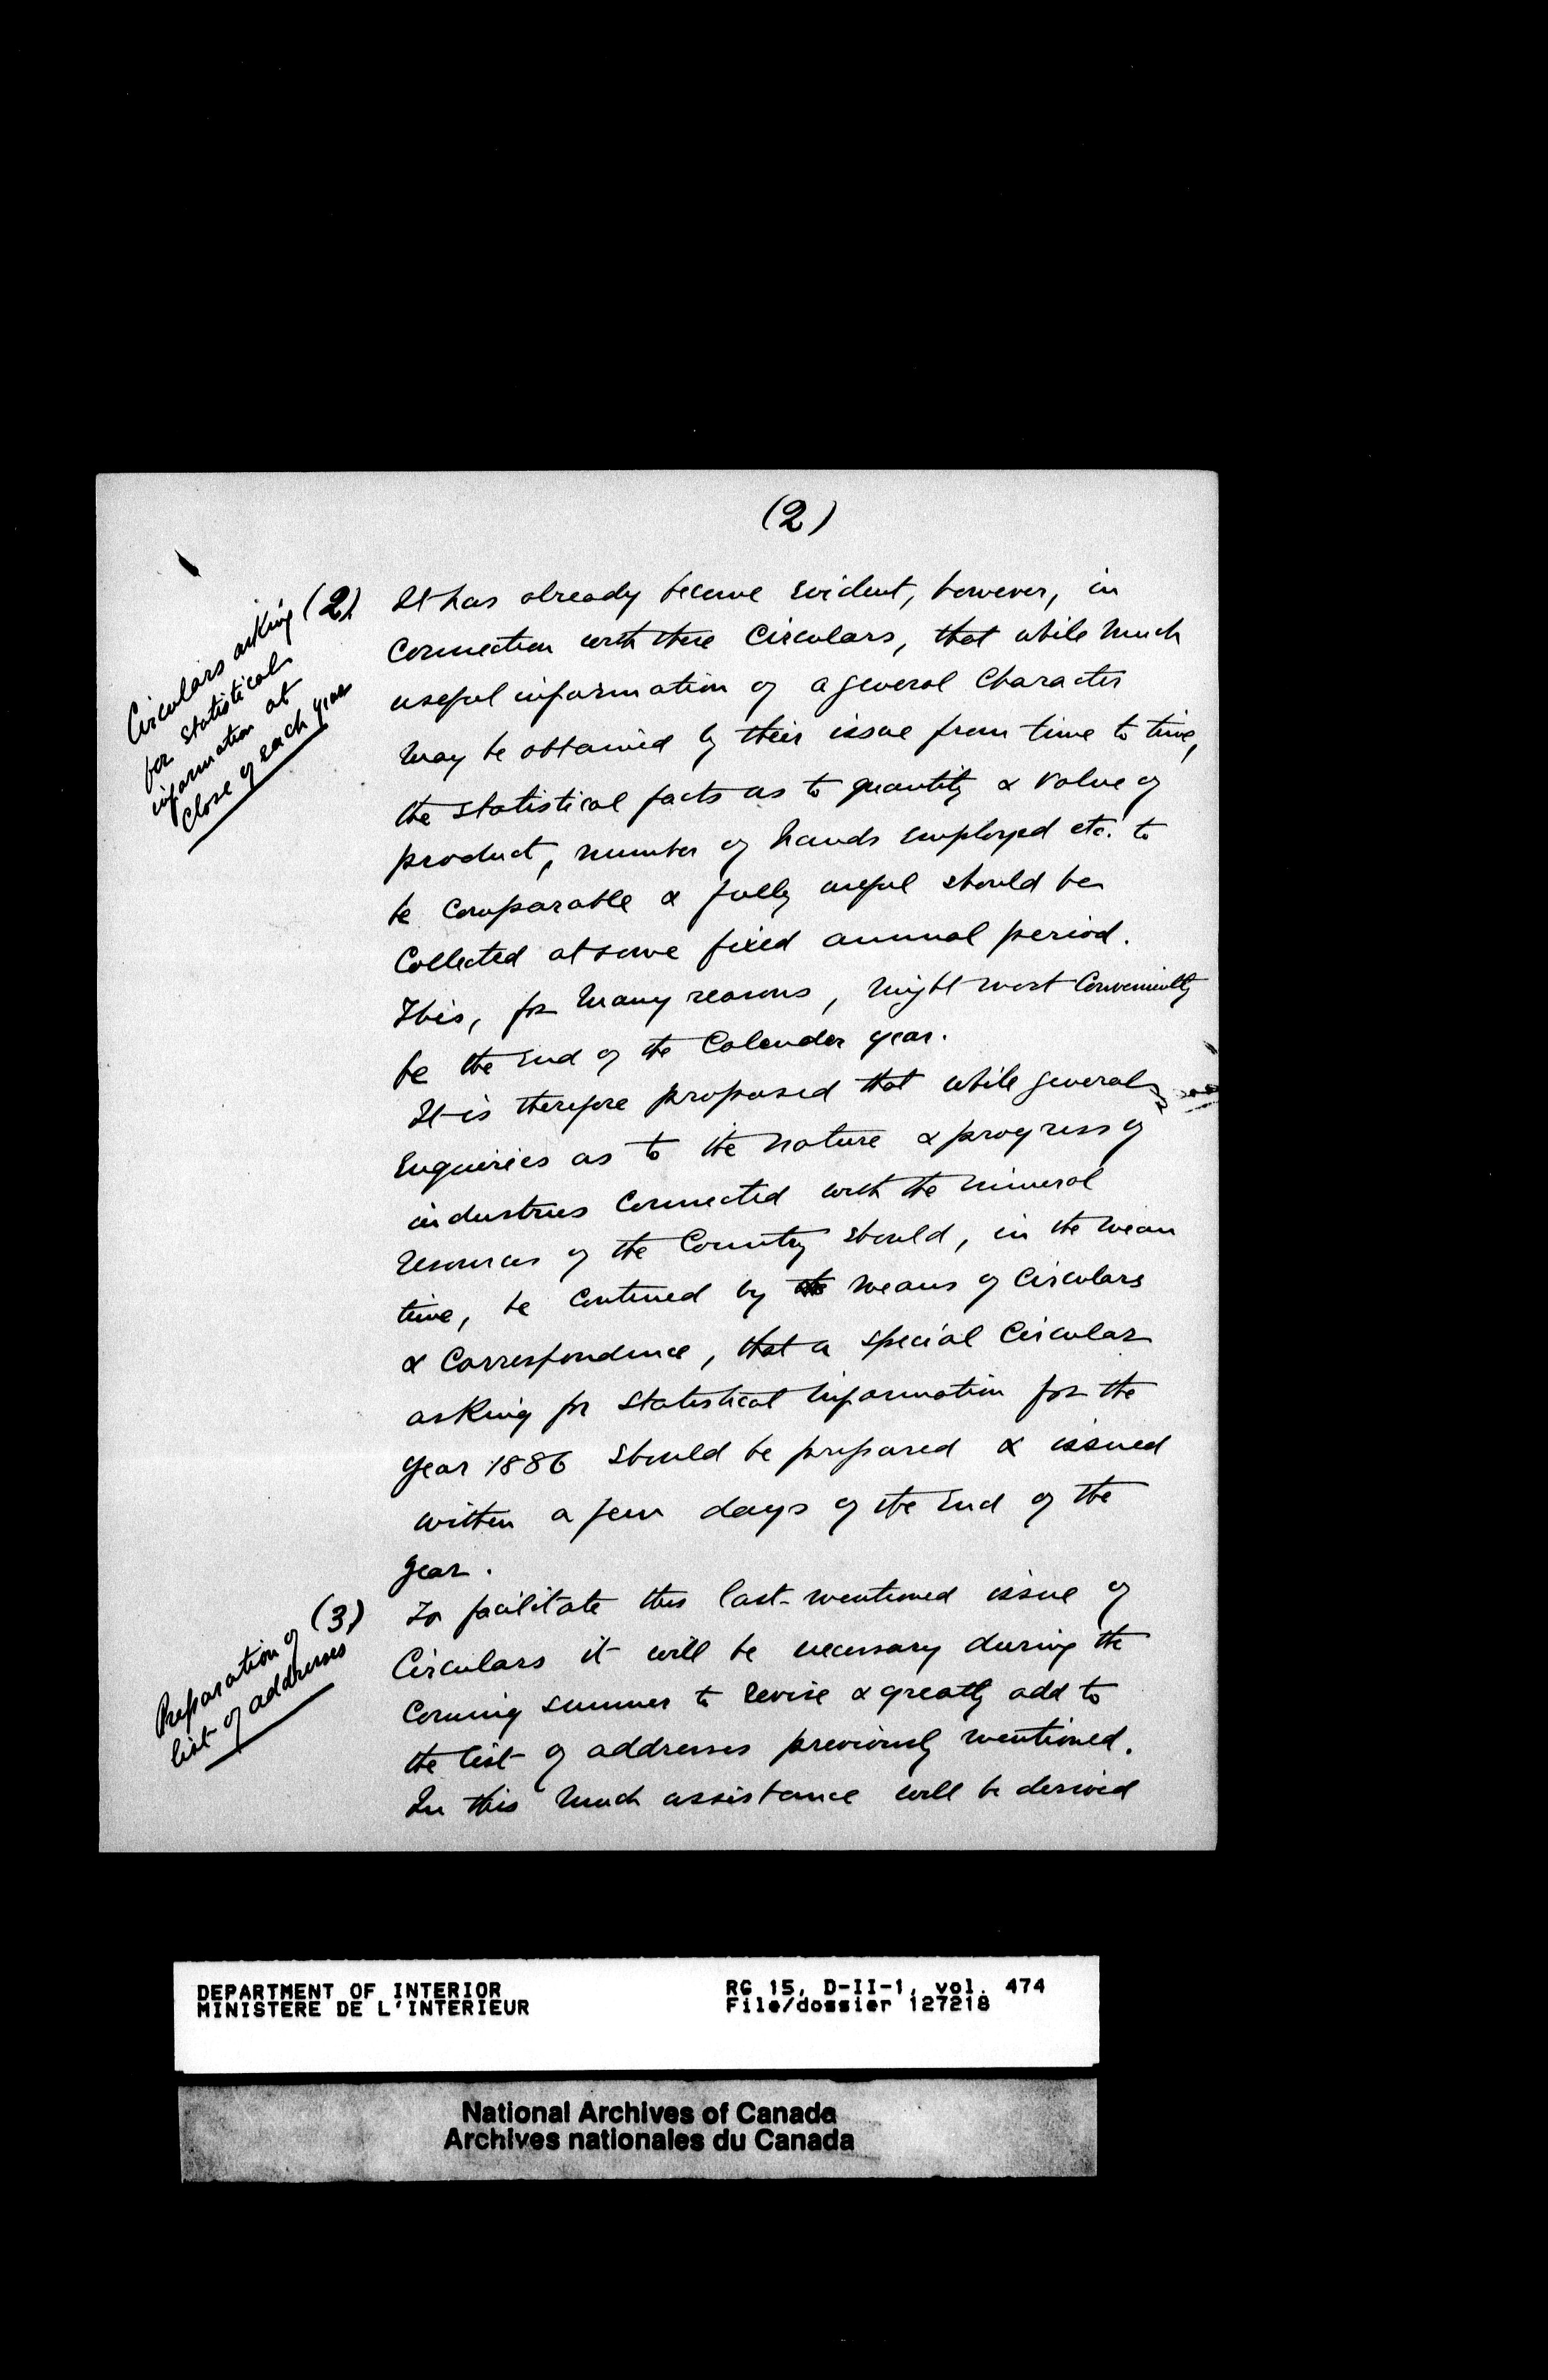 (2)
Circulars asking
for statistical
information at
close of each year
(2) It has already become evident, however, in
connection with these Circulars, that while much
useful information of a general Character
may be obtained by their issue from time to time,
the statistical facts as to quantity & value of
product, number of hands employed etc. to
be comparable & fully useful should be
Collected at some fixed annual period.
This, for many reasons, might most Conveniently
be the end of the Calender year.
It is therefore proposed that while general
Enquiries as to the nature & progress of
industries Connected with the mineral
resources of the Country should, in the mean
time, be continued by means of Circulars
& Correspondence, that a special Circular
asking for statistical information for the
year 1886 should be prepared & issued
within a few days of the end of the
year.
Preparation of
list of addresses
(3) To facilitate this last-mentioned issue of
Circulars it will be necessary during the
Coming summer to revise & greatly add to
the list of addresses previously mentioned.
In this much assistance will be derived
DEPARTMENT OF INTERIOR
MINISTERE DE L'INTERIEUR
RG 15, D-II-1, vol. 474
File/dossier 127218
National Archives of Canada
Archives nationales du Canada